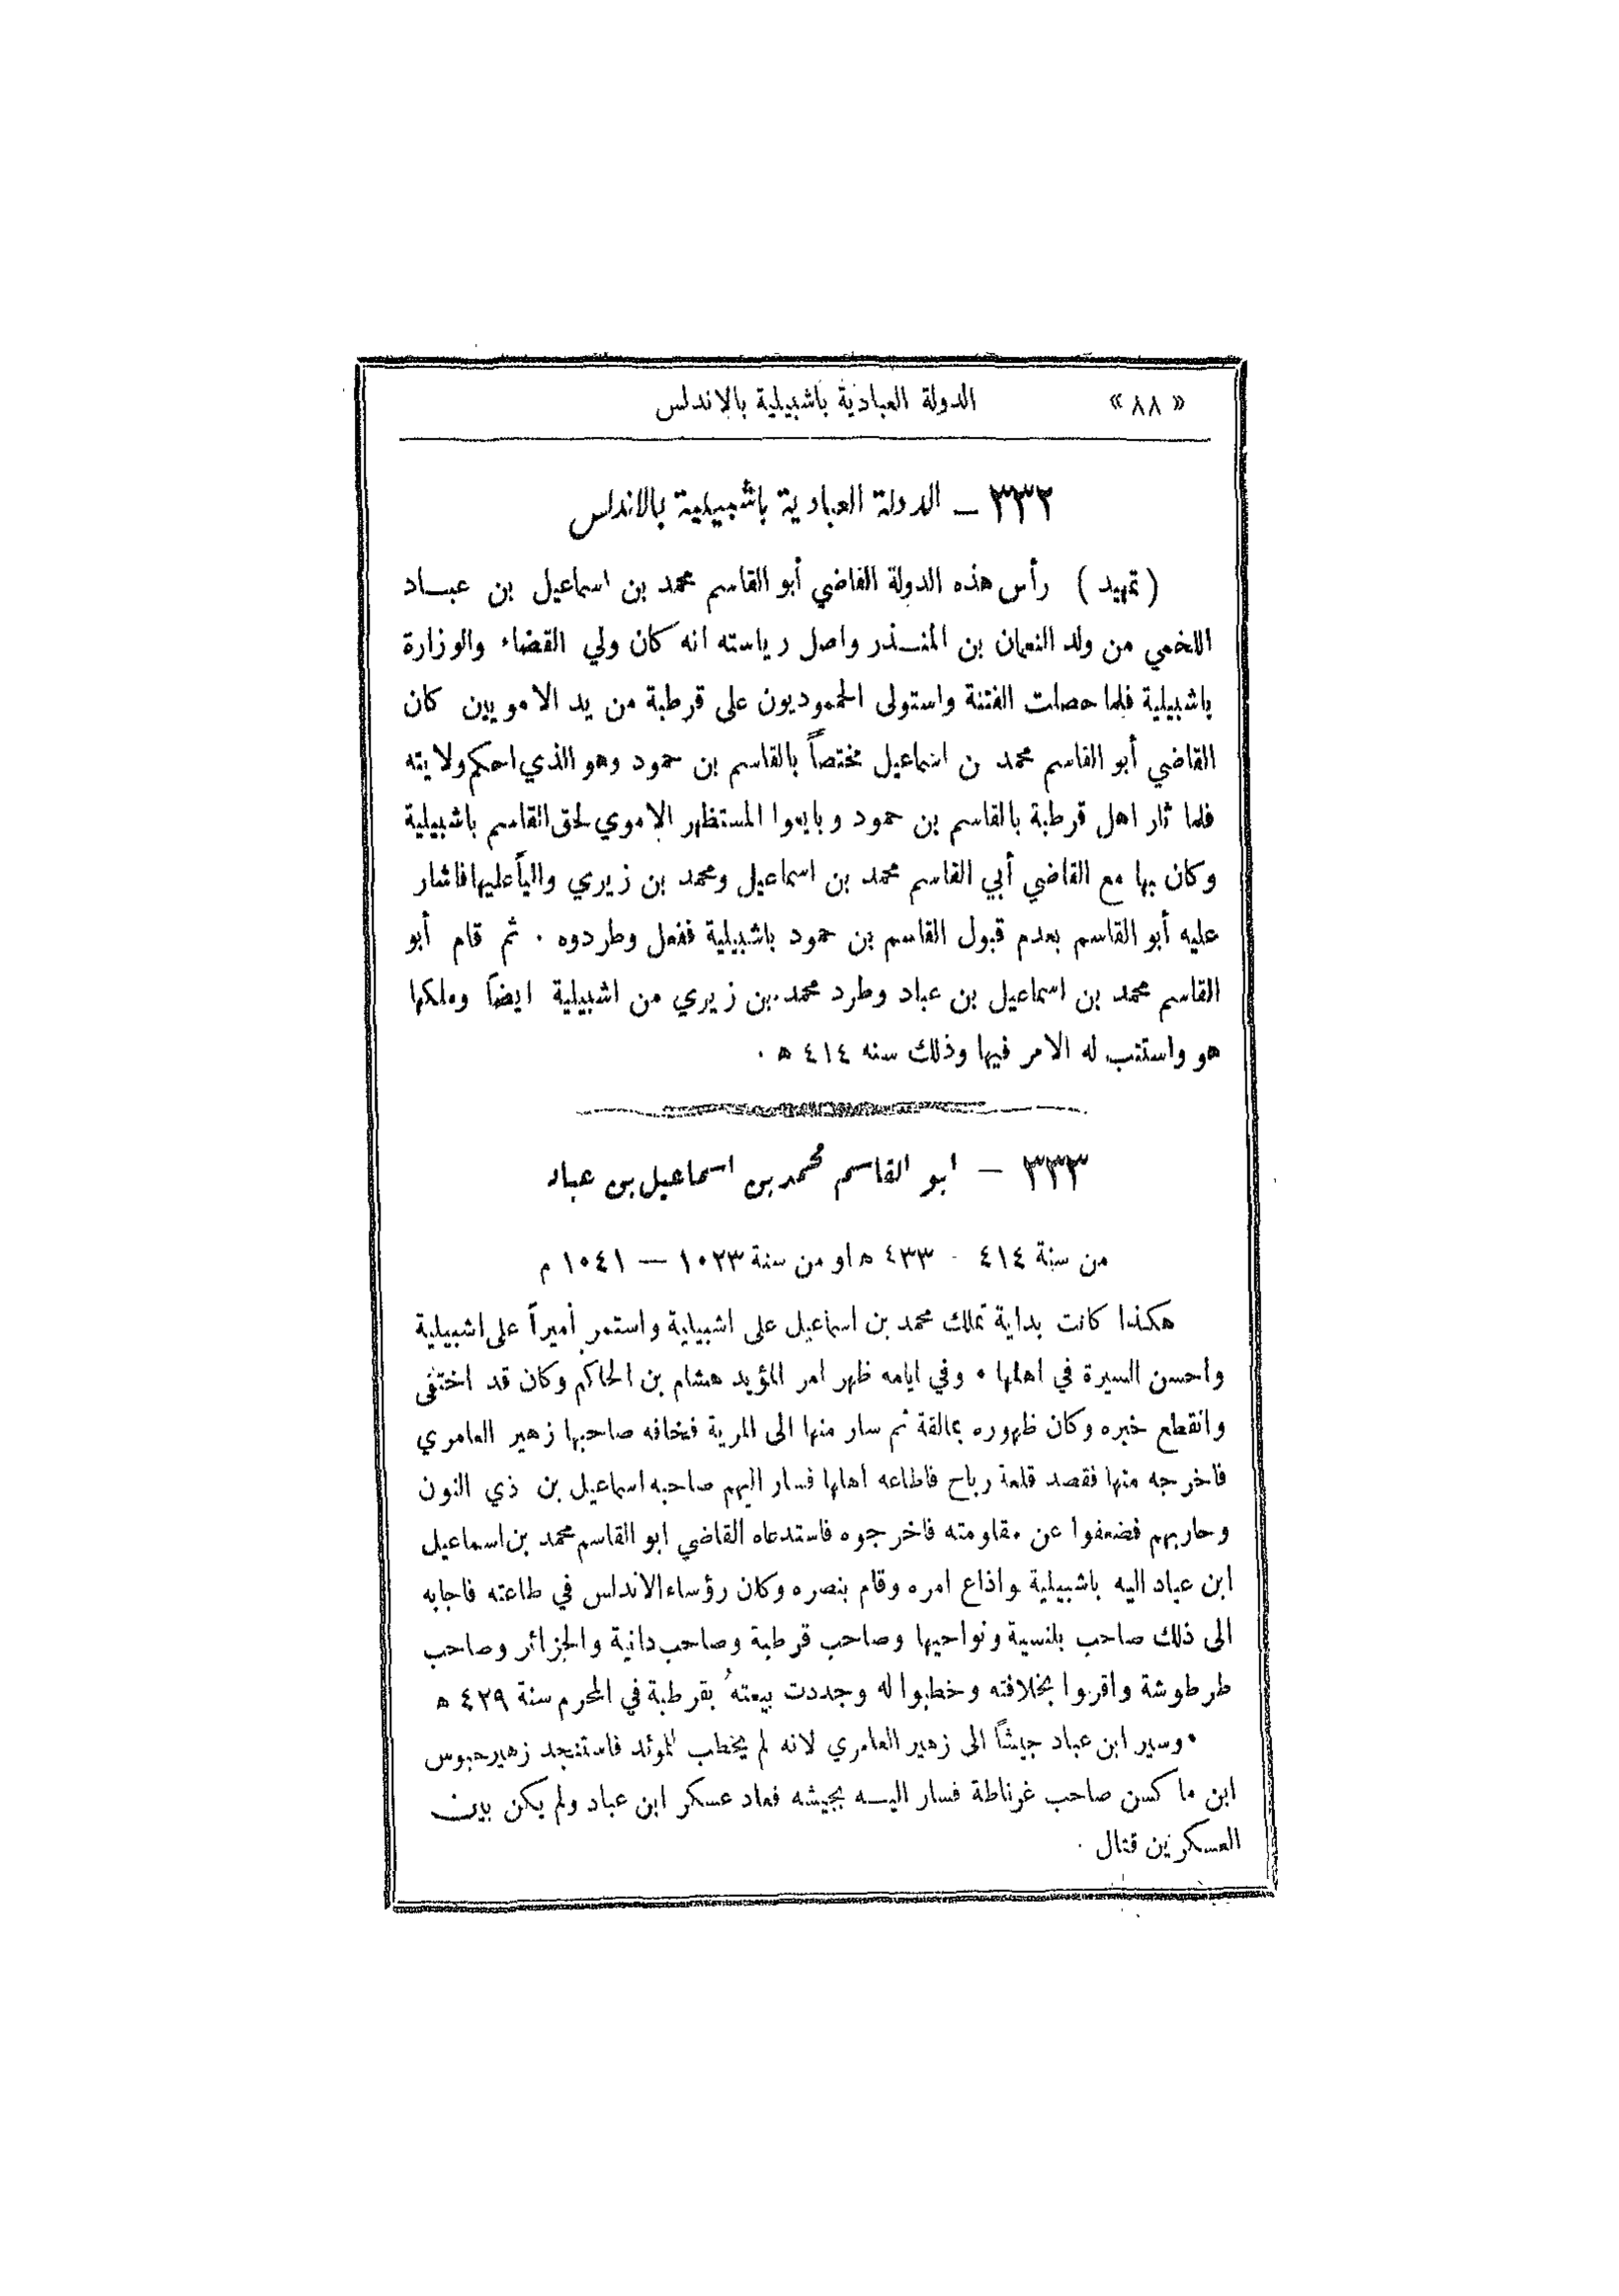 « ٨٨ » الدولة العبادية باشبيلية بالاندلس
٣٣٢ – الدولة العبادية باشبيلية بالاندلس
( تمهيد ) رأس هذه الدولة القاضي أبو القاسم محمد بن اسماعيل بن عبـاد
اللخمي من ولد النعمان بن المنـذر واصل رياسته انه كان ولي القضاء والوزارة
باشبيلية فلما حصلت الفتنة واستولى الحموديون على قرطبة من يد الامويين كان
القاضي أبو القاسم محمد ن اسماعيل مختصاً بالقاسم بن حمود وهو الذي احكم ولايته
فلما ثار اهل قرطبة بالقاسم بن حمود وبايعوا المستظهر الاموي لحق القاسم باشبيلية
وكان بها مع القاضي أبي القاسم محمد بن اسماعيل ومحمد بن زيري والياً عليها فاشار
عليه أبو القاسم بعدم قبول القاسم بن حمود باشبيلية ففعل وطردوه . ثم قام أبو
القاسم محمد بن اسماعيل بن عباد وطرد محمد بن زيري من اشبيلية ايضاً وملكها
هو واستتب له الامر فيها وذلك سنه ٤١٤ ه .
٣٣٣ – ابو القاسم محمد بن اسماعيل بن عباد
من سنة ٤١٤ - ٤٣٣ ه او من سنة ١٠٢٣ – ١٠٤١ م
هكذا كانت بداية تملك محمد بن اسماعيل على اشبيلية واستمر أميراً على اشبيلية
واحسن السيرة في اهلها . وفي ايامه ظهر امر المؤيد هشام بن الحاكم وكان قد اختفى
وانقطع خبره وكان ظهوره بمالقة ثم سار منها الى المرية فخافه صاحبها زهير العامري
فاخرجه منها فقصد قلعة رباح فاطاعه اهلها فسار اليهم صاحبه اسماعيل بن ذي النون
وحاربهم فضعفوا عن مقاومته فاخرجوه فاستدعاه القاضي ابو القاسم محمد بن اسماعيل
ابن عباد اليه باشبيلية واذاع امره وقام بنصره وكان رؤساء الاندلس في طاعته فاجابه
الى ذلك صاحب بلنسية ونواحيها وصاحب قرطبة وصاحب دانية والجزائر وصاحب
طرطوشة واقروا بخلافته وخطبوا له وجددت بيعتهُ بقرطبة في المحرم سنة ٤٢٩ ه
. وسير ابن عباد جيشاً الى زهير العامري لانه لم يخطب للموئد فاستنجد زهير حبوس
ابن ماكسن صاحب غرناطة فسار اليـه بجيشه فعاد عسكر ابن عباد ولم يكن بين
العسكرين قتال .